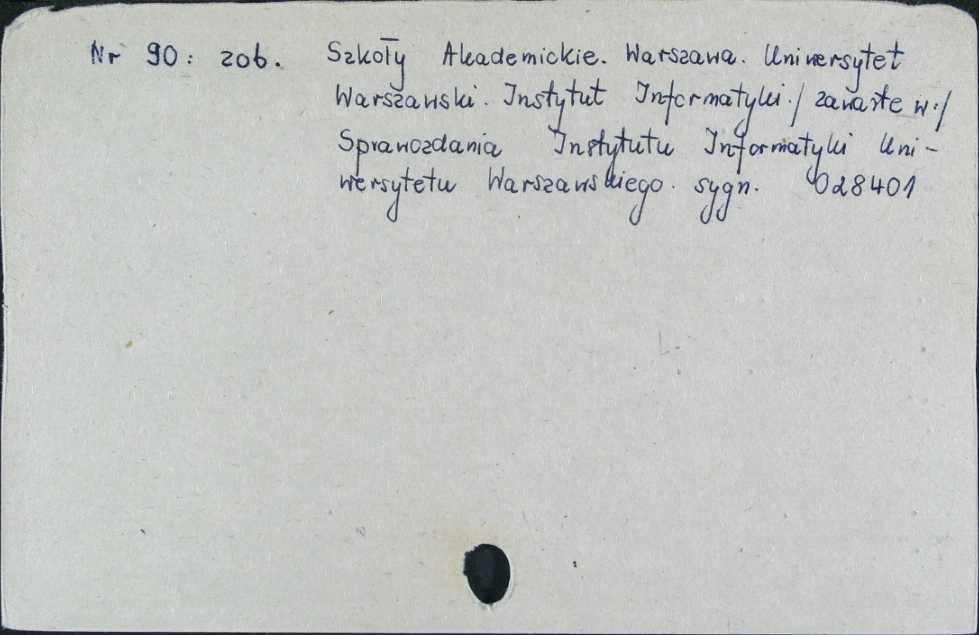 Nr 90: zob. Szkoły Akademickie. Warszawa. Uniwersytet
Warszawski. Instytut Informatyki./ zawarte w:/
Sprawozdania Instytutu Informatyki Uni-
wersytetu Warszawskiego. sygn. 028401